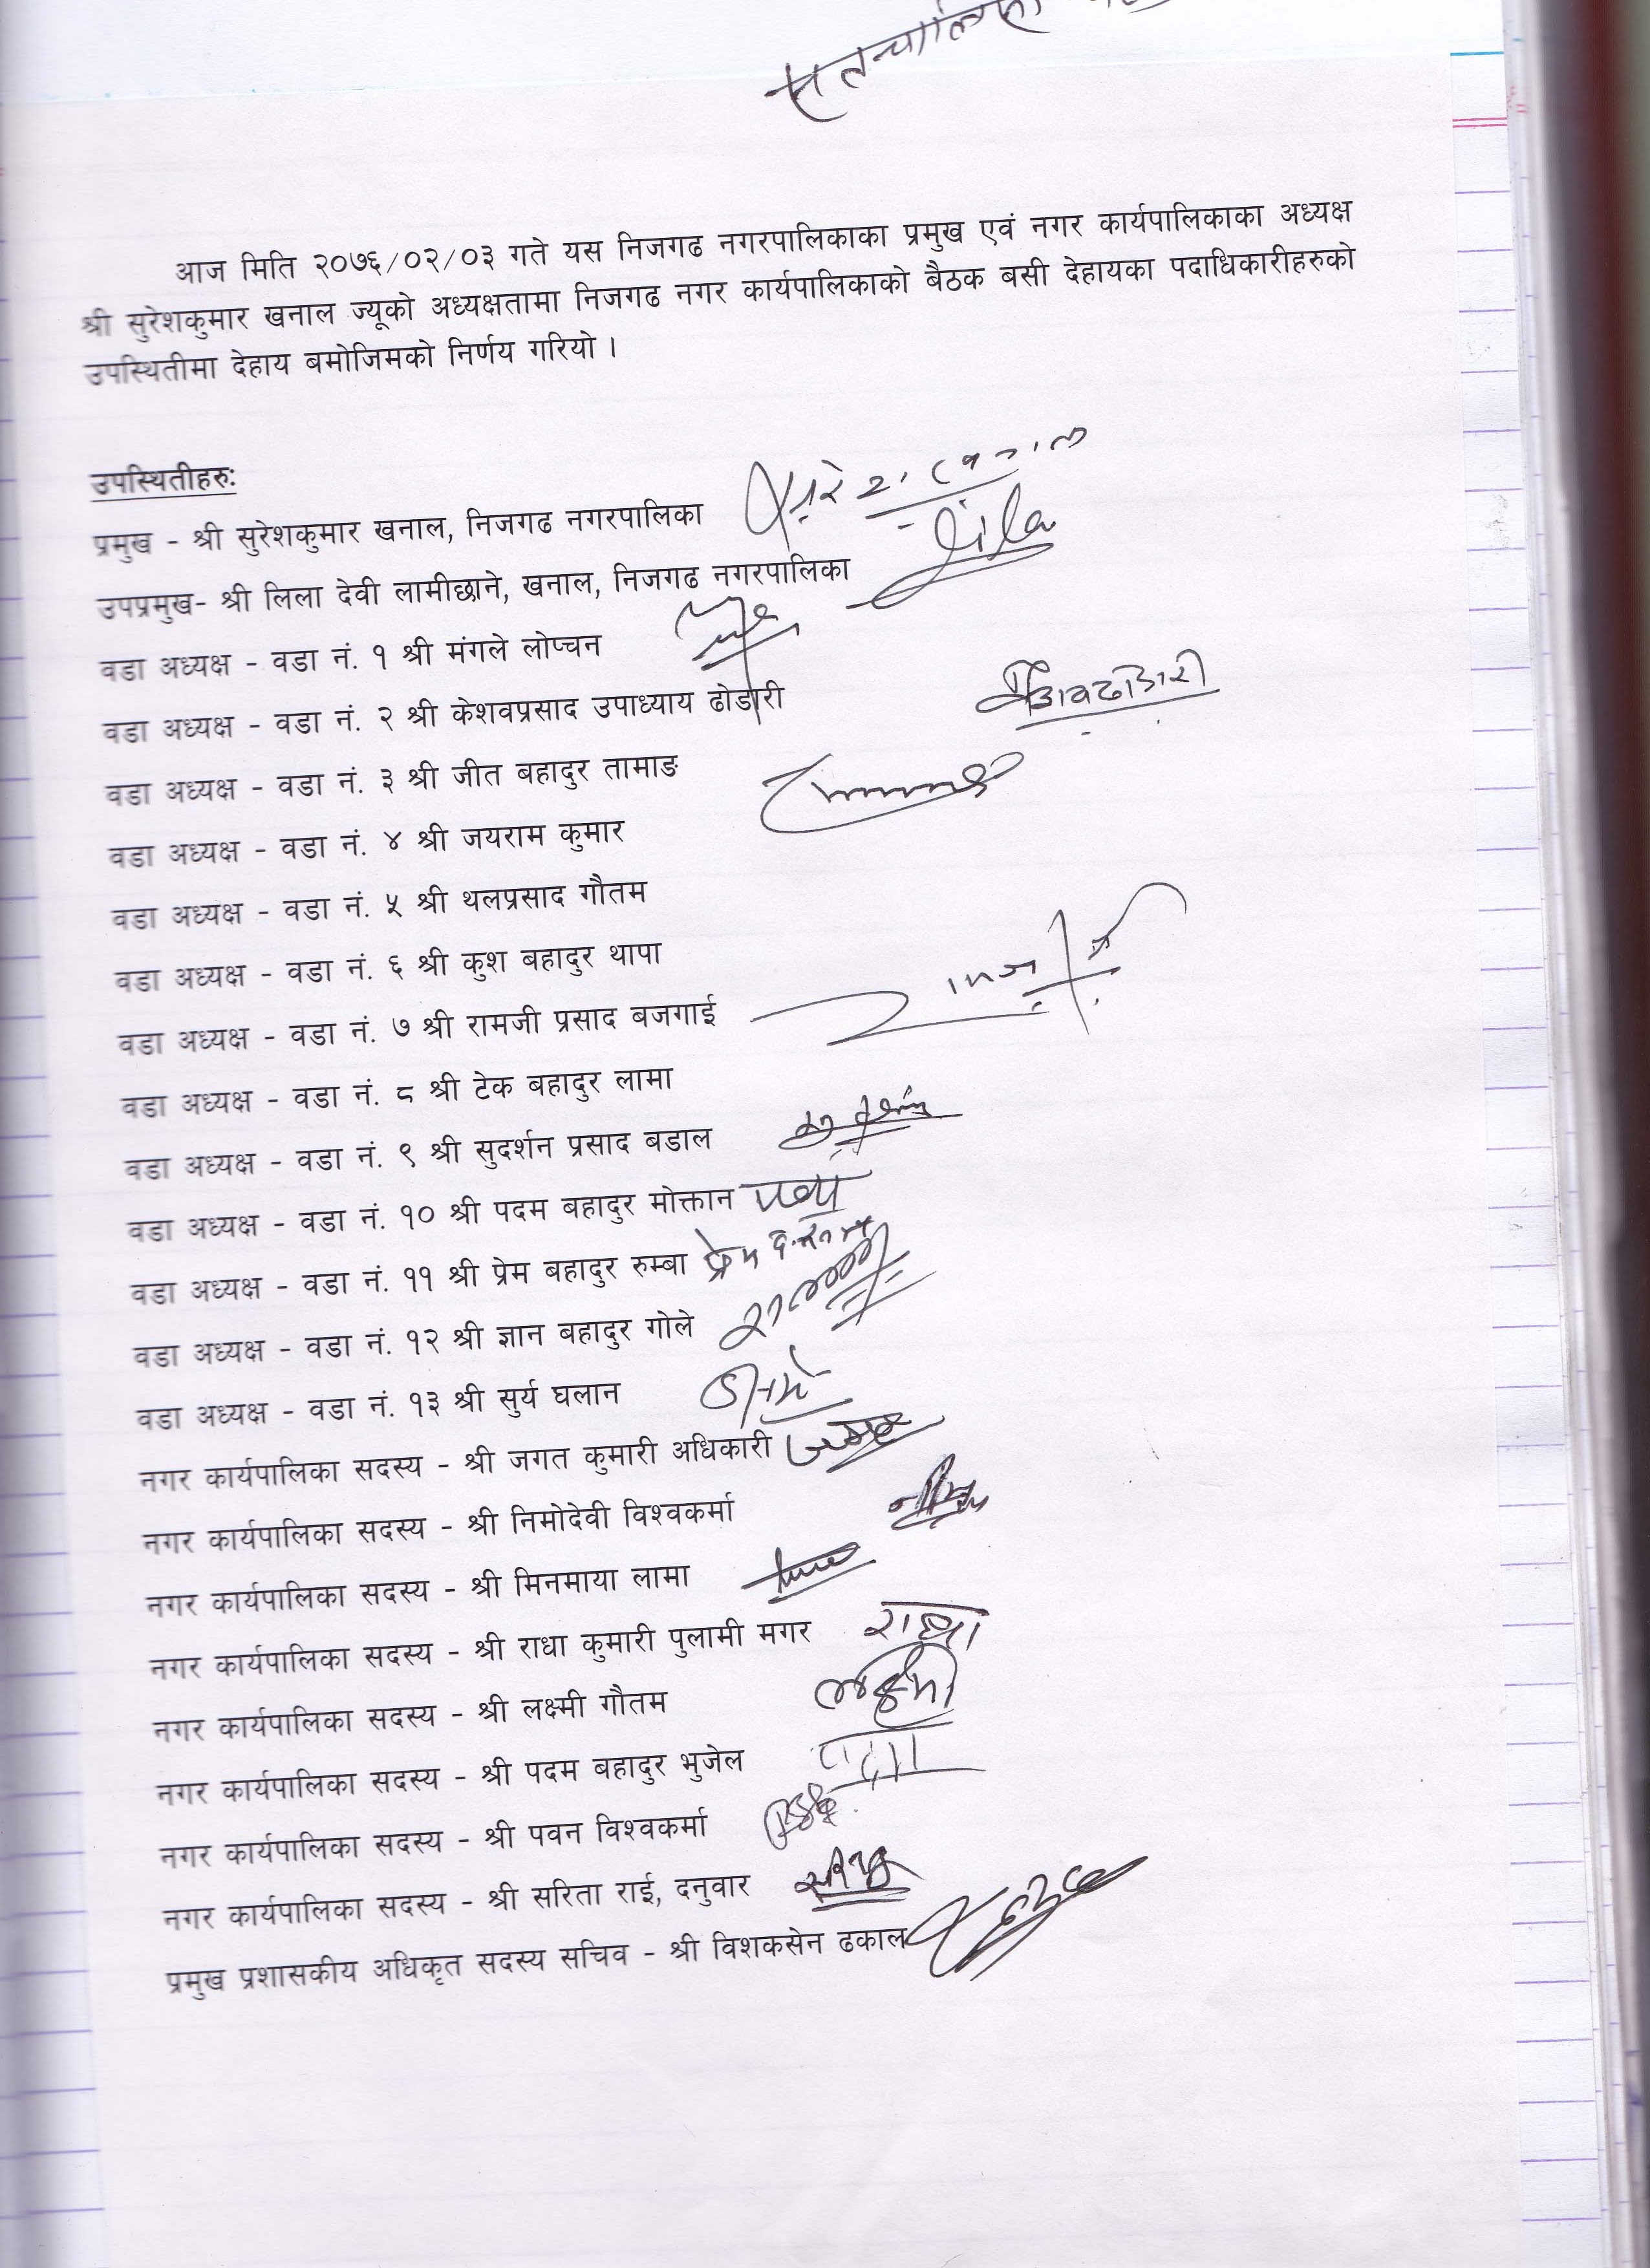 आज मिति २०७६/०२/०३ गते यस निजगढ नगरपालिकाका प्रमुख एवं नगर कार्यपालिकाका अध्यक्ष
श्री सुरेशकुमार खनाल ज्यूको अध्यक्षतामा निजगढ नगर कार्यपालिकाको बैठक बसी देहायका पदाधिकारीहरुको
उपस्थितीमा देहाय बमोजिमको निर्णय गरियो ।
उपस्थितीहरुः
प्रमुख - श्री सुरेशकुमार खनाल, निजगढ नगरपालिका
उपप्रमुख- श्री लिला देवी लामीछाने, खनाल, निजगढ नगरपालिका
वडा अध्यक्ष - वडा नं. १ श्री मंगले लोप्चन
वडा अध्यक्ष - वडा नं. २ श्री केशवप्रसाद उपाध्याय ढोडारी
वडा अध्यक्ष - वडा नं. ३ श्री जीत बहादुर तामाङ
वडा अध्यक्ष - वडा नं. ४ श्री जयराम कुमार
वडा अध्यक्ष - वडा नं. ५ श्री थलप्रसाद गौतम
वडा अध्यक्ष - वडा नं. ६ श्री कुश बहादुर थापा
वडा अध्यक्ष - वडा नं. ७ श्री रामजी प्रसाद बजगाई
वडा अध्यक्ष - वडा नं. ८ श्री टेक बहादुर लामा
वडा अध्यक्ष - वडा नं. ९ श्री सुदर्शन प्रसाद बडाल
वडा अध्यक्ष - वडा नं. १० श्री पदम बहादुर मोक्तान
वडा अध्यक्ष - वडा नं. ११ श्री प्रेम बहादुर रुम्बा
वडा अध्यक्ष - वडा नं. १२ श्री ज्ञान बहादुर गोले
वडा अध्यक्ष - वडा नं. १३ श्री सुर्य घलान
नगर कार्यपालिका सदस्य - श्री जगत कुमारी अधिकारी
नगर कार्यपालिका सदस्य - श्री निमोदेवी विश्वकर्मा
नगर कार्यपालिका सदस्य - श्री मिनमाया लामा
नगर कार्यपालिका सदस्य - श्री राधा कुमारी पुलामी मगर राधा
नगर कार्यपालिका सदस्य - श्री लक्ष्मी गौतम
नगर कार्यपालिका सदस्य - श्री पदम बहादुर भुजेल
नगर कार्यपालिका सदस्य - श्री पवन विश्वकर्मा
नगर कार्यपालिका सदस्य - श्री सरिता राई, दनुवार
प्रमुख प्रशासकीय अधिकृत सदस्य सचिव - श्री विशकसेन ढकाल